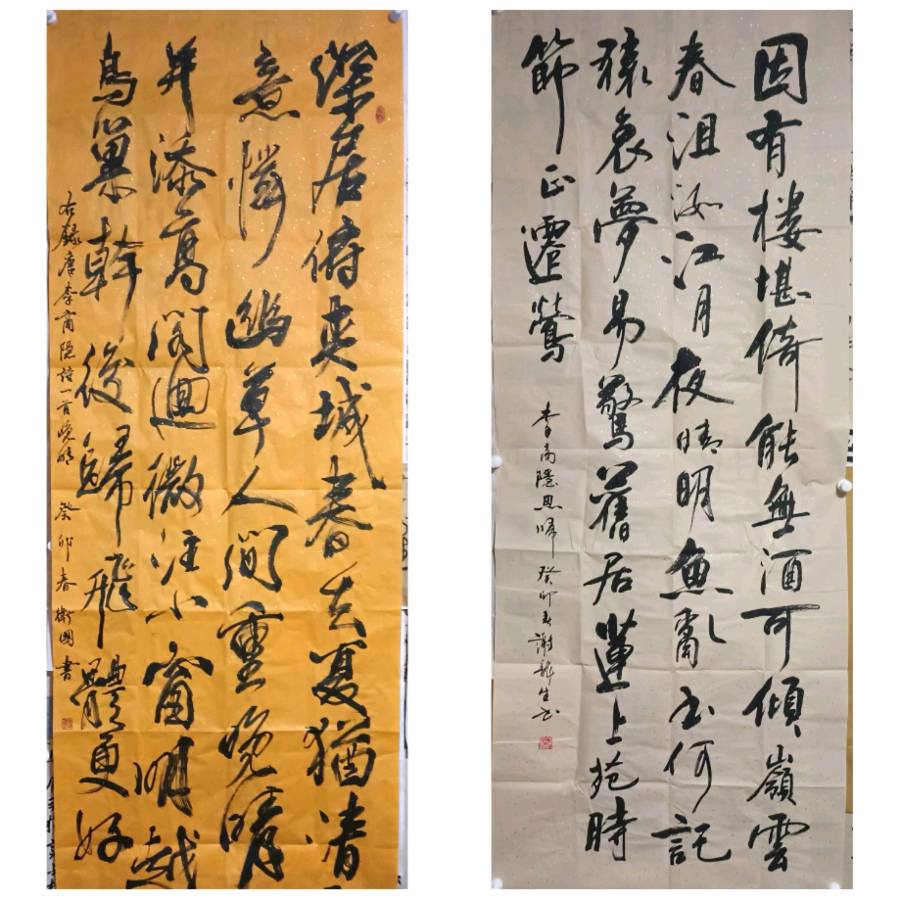 深居俯夾城春去夏猶清
意憐幽草人間重晚晴
并添高閣迥微注小窗明越
鳥巢幹後歸飛體更好
右録唐李商隱詩一首晚晴 癸卯春衛國書
固有樓堪倚能無酒可傾嶺雲
春沮洳江月夜晴明魚亂书何託
猿哀夢易驚舊居蓮上苑時
節正遷鶯
李商隱思歸 癸卯春謝龍生书